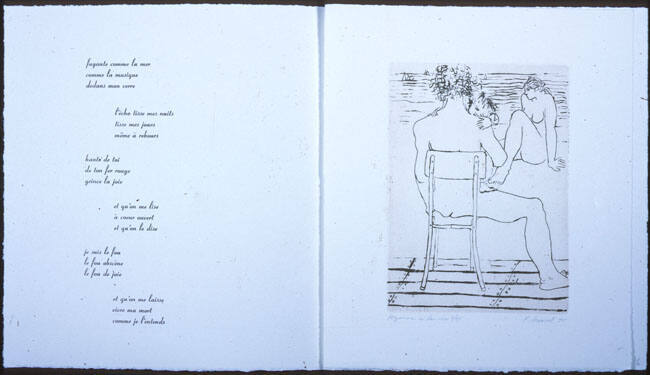 fuyante comme la mer
comme la musique
dedans mon verre
l'écho tisse mes nuits
tisse mes jours
même à rebours
hanté de toi
de ton fer rouge
grince la joie
et qu'on me lise
à coeur ouvert
et qu'on le dise
je suis le fou
le fou abscône
le fou de joie
et qu'on me laisse
vivre ma mort
comme je l'entends